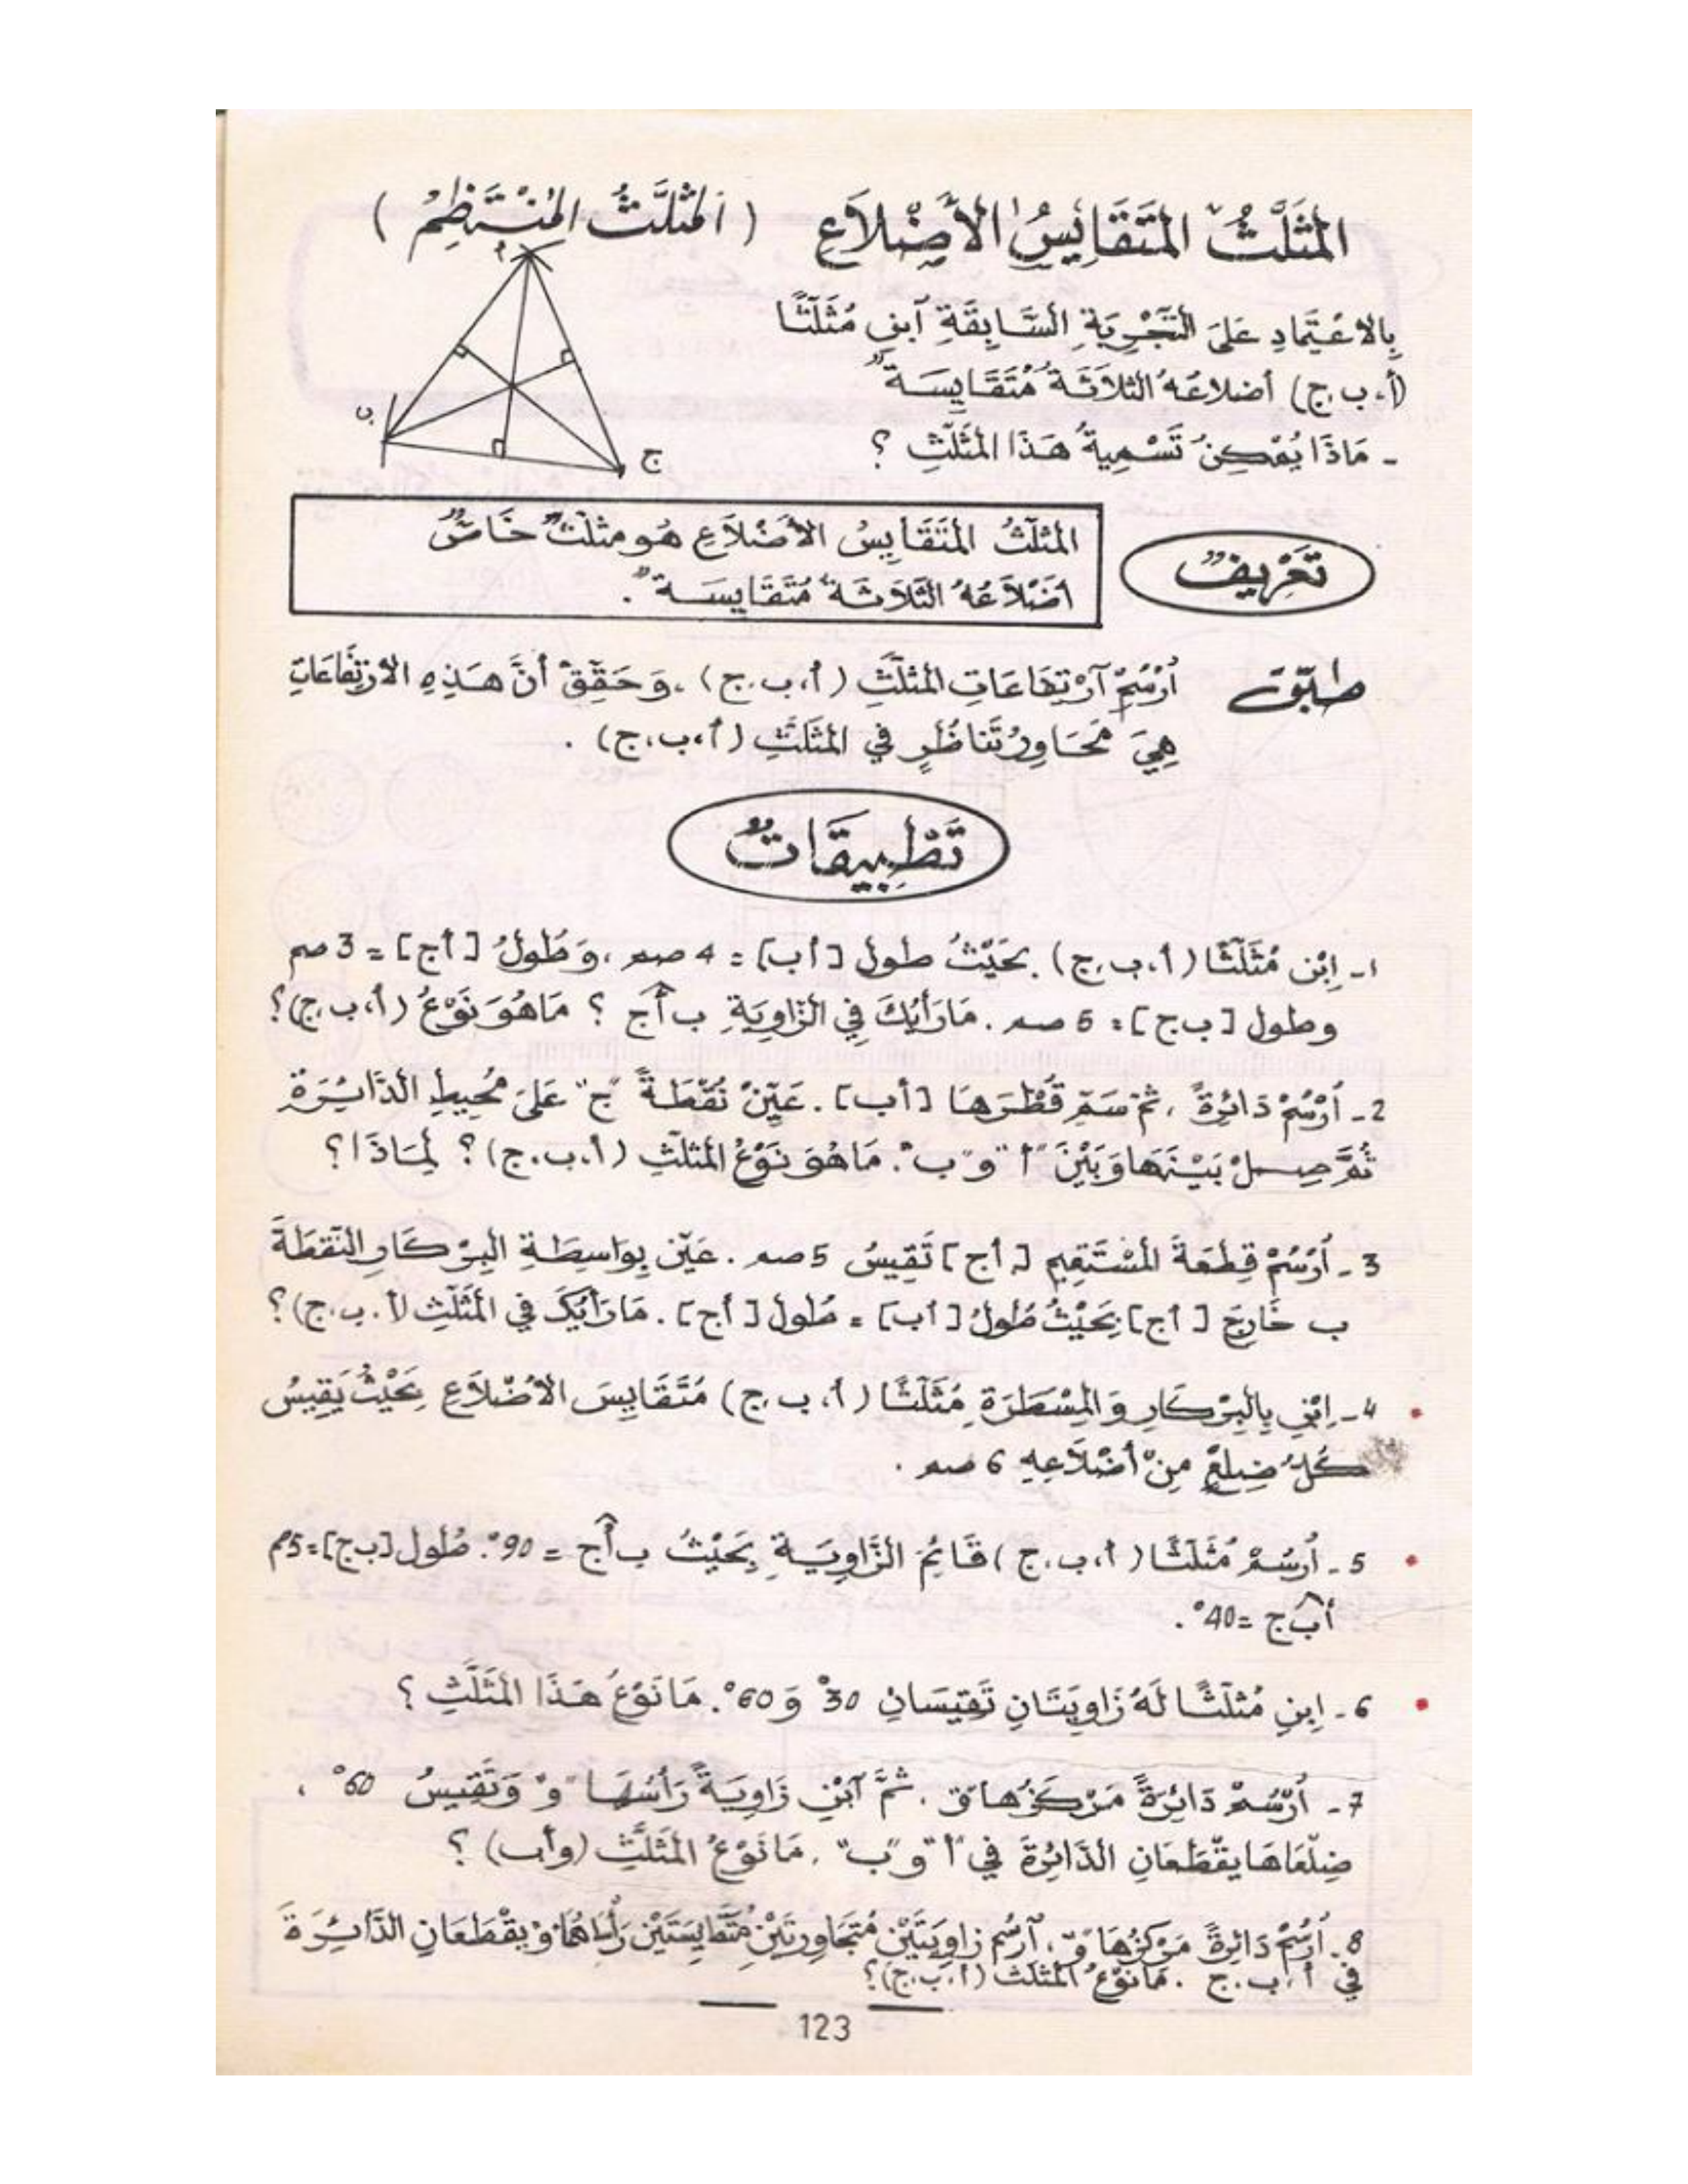 المثَلَّثُ المتَقَايِسُ الأَضْلاَعِ (المثَلَّثُ المنْتَظِمُ)
أ
بِالاعْتِمَادِ عَلَى التَّجْرِبَةِ السَّابِقَةِ آبنِ مُثَلَّثًا
(أ،ب،ج) أضلاعَهُ الثلاَثَةُ مُتَقَايِسَةٌ
ب
- مَاذَا يُمْكِنُ تَسْمِيةُ هَذَا المثَلَّثِ ؟
ج
تَعْرِيفٌ
المثلَّثُ المتَقَايِسُ الأَضْلاَعِ هُو مثلَّثٌ خَاصٌّ
أضْلاَعُهُ الثَّلاَثَةُ مُتَقَايِسَةٌ .
طبّق أُرْسُمْ آرْتِفَاعَاتِ المثلَّثِ (أ،ب،ج) ،وَحَقِّقْ أنَّ هَذِهِ الارْتِفَاعَاتِ
هِيَ مَحَاوِرُ تَنَاظُرٍ في المثَلَّثِ (أ،ب،ج) .
تَطْبِيقَاتٌ
1- اِبْنِ مُثَلَّثًا (أ،ب،ج) بحَيْثُ طول [أب] = 4 صم ،وَطُولُ [أج] = 3 صم
وطول [ب ج] = 5 صم . مَا رَأْيُكَ فِي الزَّاوِيَةِ ب أَ ج ؟ مَا هُوَ نَوْعُ (أ،ب،ج)؟
2- اُرْسُمْ دَائرةً ، ثمّ سَمّ قُطْرَهَا [أب] . عَيّنْ نُقْطَةً "ج" عَلَى مُحِيطِ الدَّائِرَةِ
ثُمَّ صِلْ بَيْنَهَا وَبَيْنَ "أ" و"ب". مَا هُوَ نَوْعُ المثلَّثِ (أ.ب.ج)؟ لِمَاذَا؟
3- اُرْسُمْ قِطْعَةَ المسْتَقِيمِ [أج] تَقِيسُ 5 صم . عَيّن بِوَاسِطَةِ البِرْكَارِ النّقطَةَ
ب خَارِجَ [أج] بِحَيْثُ طُولُ [أب] = طُول [أج]. مَا رَأْيُكَ في المثَلَّثِ (أ.ب.ج)؟
4- اِبْنِي بِالبِرْكَارِ وَالمِسْطَرَةِ مُثَلَّثًا (أ،ب،ج) مُتَقَايِسَ الأضْلاَعِ بِحَيْثُ يَقِيسُ
كُلُّ ضِلعٍ مِنْ أضْلاَعِهِ 6 صم .
5- اُرسُمْ مُثَلَّثًا (أ،ب،ج) قَائِمَ الزَّاوِيَةِ بِحَيْثُ ب أَ ج = 90°. طُول [ب ج] = 5صم
أ بَ ج = 40°.
6- اِبنِ مُثلَّثًا لَهُ زَاوِيَتَانِ تَقِيسَانِ 30° وَ 60°. مَا نَوْعُ هَذَا المثَلَّثِ ؟
7- اُرْسُمْ دَائِرةً مَرْكَزُهَا و ، ثمَّ آبْنِ زَاوِيَةً رَأْسُهَا "و" وَتَقِيسُ 60° ،
ضِلْعَاهَا يقْطَعَانِ الدَّائِرَةَ في "أ" و"ب" . مَا نَوْعُ المثَلَّثِ (وأب) ؟
8. اُرسُمْ دَائِرةً مَرْكَزُهَا و، آرسُم زاوِيَتَيْنِ مُتجَاوِرتَيْنِ مُتَقَايِسَتَيْنِ رَأْسَاهُمَا و يقْطَعَانِ الدَّائِرَةَ
في أ،ب،ج . مَا نَوْعُ المثلث (أ،ب،ج)؟
123